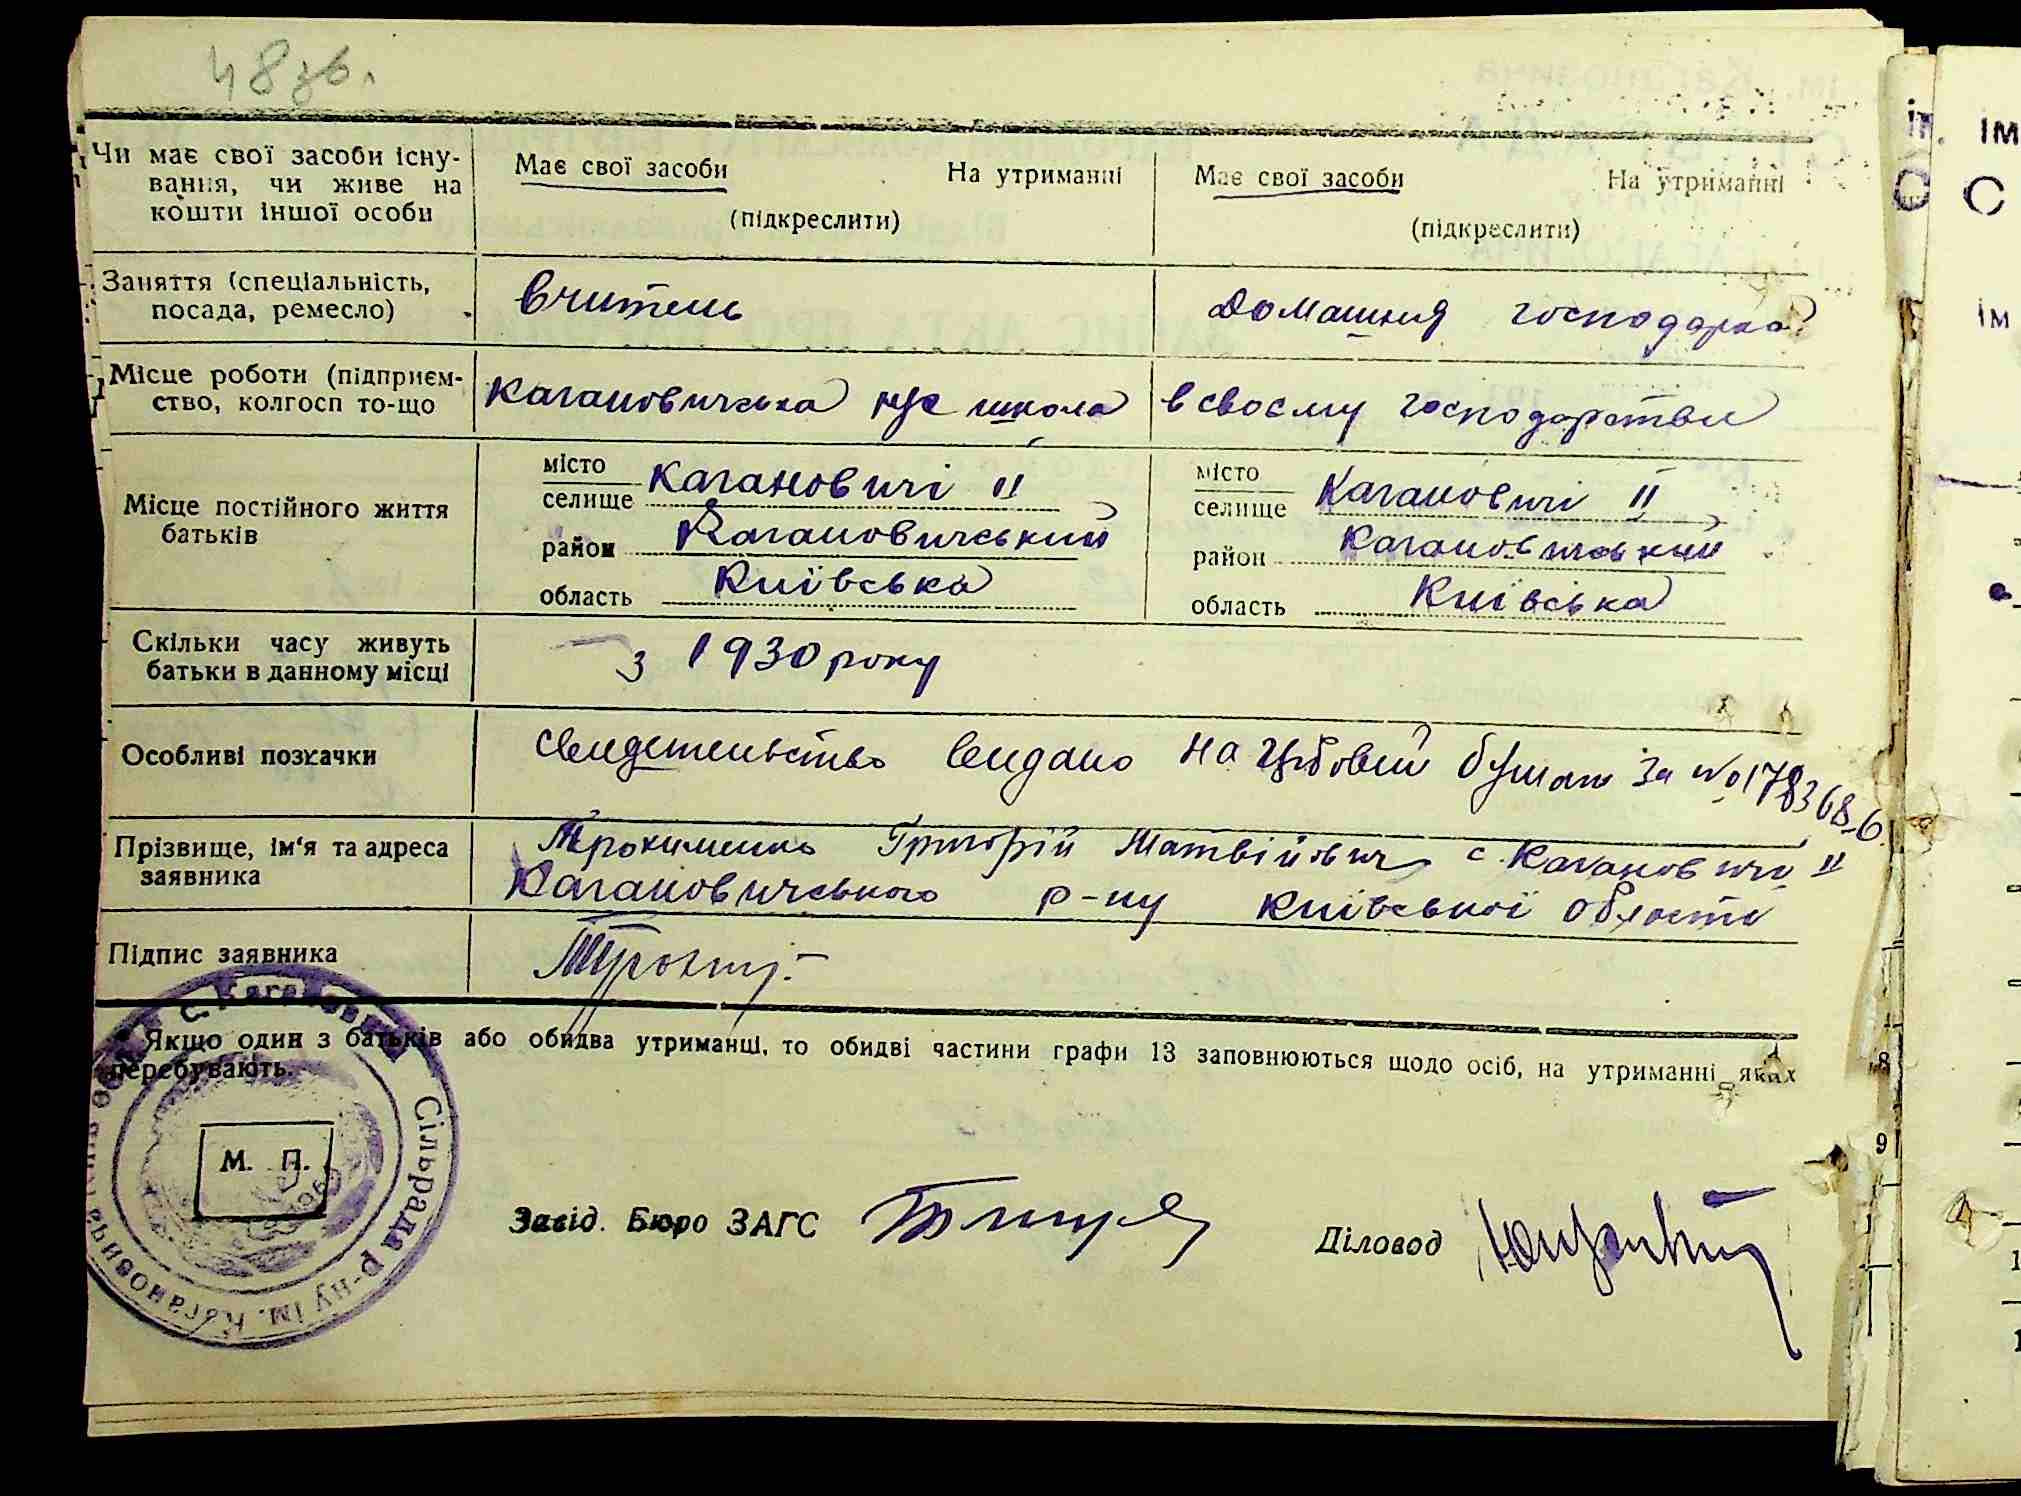 48 зв.
Чи має свої засоби існу-
вання, чи живе на
кошти іншої особи
Має свої засоби На утриманні
(підкреслити)
Має свої засоби На утриманні
(підкреслити)
Заняття (спеціальність,
посада, ремесло)
Вчитель
Домашня господарка
Місце роботи (підприєм-
ство, колгосп то-що
Кагановичська школа
в своєму господарстві
Місце постійного життя
батьків
місто
селище Кагановичі II
район Кагановичський
область Київська
місто
селище Кагановичі II
район Кагановичський
область Київська
Скільки часу живуть
батьки в данному місці
з 1930 року
Особливі позначки
свидетельство видано на гербовий бумазі за № 178368-б
Прізвище, ім'я та адреса
заявника
Трохименко Григорій Матвійович с. Кагановичі II
Кагановичського р-ну Київської области
Підпис заявника
Якщо один з батьків або обидва утриманці, то обидві частини графи 13 заповнюються щодо осіб, на утриманні яких
перебувають.
М. П.
с. Кагановичі Сільрада р-ну ім. Кагановича
Завід. Бюро ЗАГС
Діловод
8
9
ім
С
ім